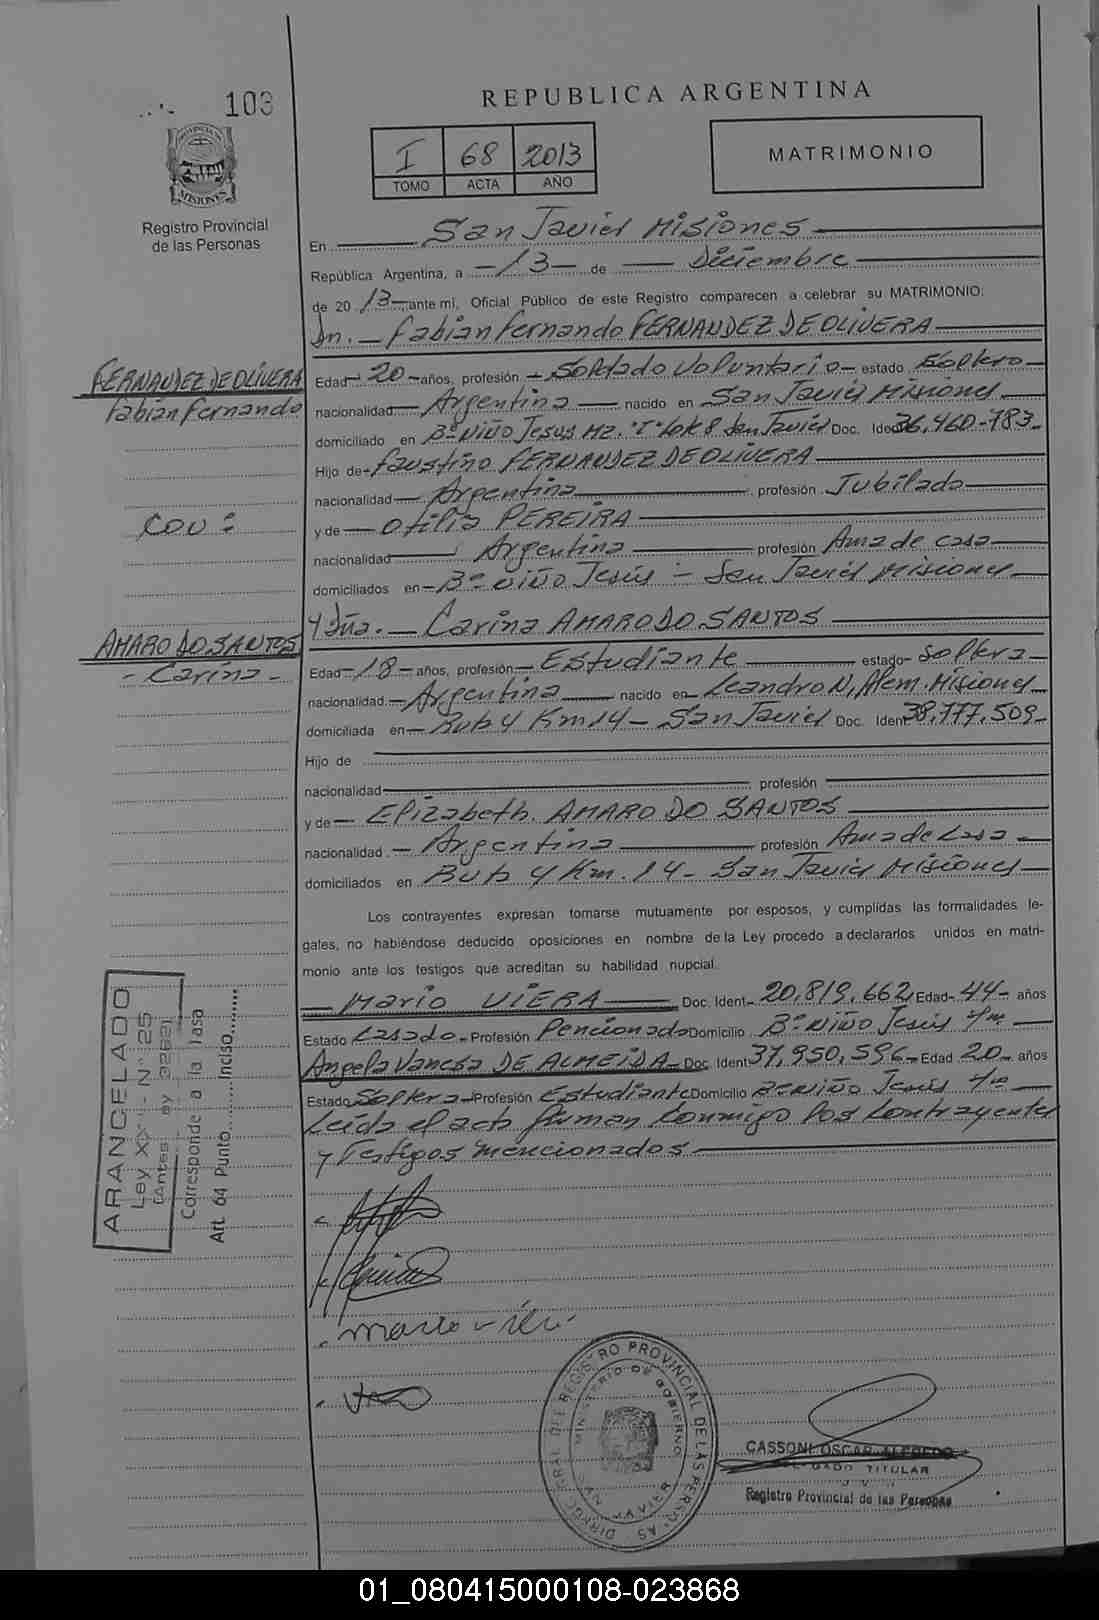 103
REPUBLICA ARGENTINA
I 68 2013
TOMO ACTA AÑO
MATRIMONIO
PROVINCIA DE MISIONES
Registro Provincial
de las Personas
En San Javier Misiones
República Argentina, a -13- de Diciembre
de 20 13 ,ante mí, Oficial Público de este Registro comparecen a celebrar su MATRIMONIO:
Dn. Fabian Fernando FERNANDEZ DE OLIVERA
FERNANDEZ DE OLIVERA
Fabian Fernando
Edad -20- años, profesión - Soldado Voluntario - estado Soltero
nacionalidad Argentina nacido en San Javier Misiones
domiciliado en Bº Niño Jesus Mz. "I" lote 8 San Javier Doc. Ident 36.460.783
Hijo de Faustino FERNANDEZ DE OLIVERA
nacionalidad Argentina profesión Jubilado
CON:
y de Ofilia PEREIRA
nacionalidad Argentina profesión Ama de casa
domiciliados en Bº Niño Jesús - San Javier Misiones
Y Dña. Carina AMARO DO SANTOS
AMARO DO SANTOS
- Carina -
Edad -18- años, profesión - Estudiante estado- Soltera
nacionalidad. Argentina nacido en Leandro N. Alem. Misiones
domiciliada en Ruta 4 Km 14 - San Javier Doc. Ident 38.777.509-
Hijo de
nacionalidad profesión
y de Elizabeth AMARO DO SANTOS
nacionalidad . Argentina profesión Ama de casa
domiciliados en Ruta 4 Km. 14 - San Javier Misiones
Los contrayentes expresan tomarse mutuamente por esposos, y cumplidas las formalidades le-
gales, no habiéndose deducido oposiciones en nombre de la Ley procedo a declararlos unidos en matri-
monio ante los testigos que acreditan su habilidad nupcial.
Mario VIERA Doc. Ident- 20.819.662 Edad- 44- años
Estado Casado- Profesión Pencionado Domicilio Bº Niño Jesús
Angela Vanesa DE ALMEIDA Doc Ident 37.950.596- Edad 20- años
Estado Soltera Profesión Estudiante Domicilio Bº Niño Jesus
Leida el acta firman conmigo los contrayentes
y testigos mencionados
ARANCELADO
Ley XX - Nº 25
(Antes Ley 3262)
Corresponde a la tasa
Art. 64 Punto........Inciso........
mario vier
DIREC. GRAL. DEL REGISTRO PROVINCIAL DE LAS PERSONAS
MINISTERIO DE GOBIERNO
SAN JAVIER
CASSONI OSCAR ALFREDO
DELEGADO TITULAR
Registro Provincial de las Personas
01_080415000108-023868